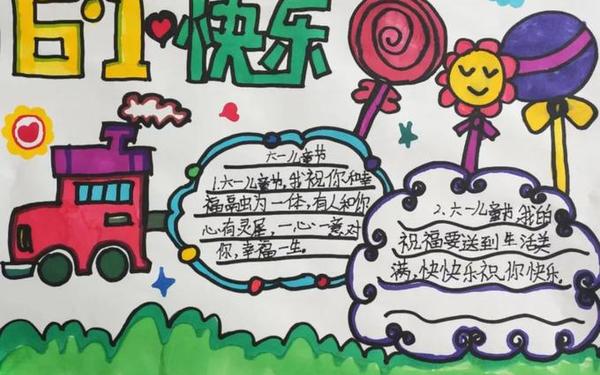 6·1快乐
六一儿童节
1.六一儿童节,我祝你和幸
福融为一体,有人和你
心有灵犀,一心一意对
你,幸福一生.
2.六一儿童节,我的
祝福要送到生活美
满,快快乐祝你快乐.